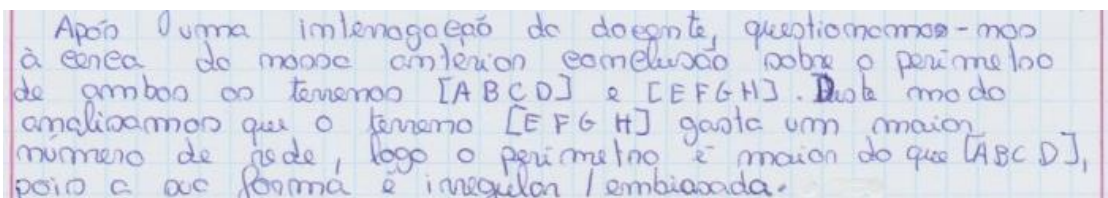 Após uma interrogação da docente, questionamos-nos
à cerca da nossa anterior conclusão sobre o perímetro
de ambos os terrenos [ABCD] e [EFGH]. Deste modo
analisamos que o terreno [EFGH] gasta um maior
número de rede, logo o perímetro é maior do que [ABCD],
pois a sua forma é irregular / embiasada.